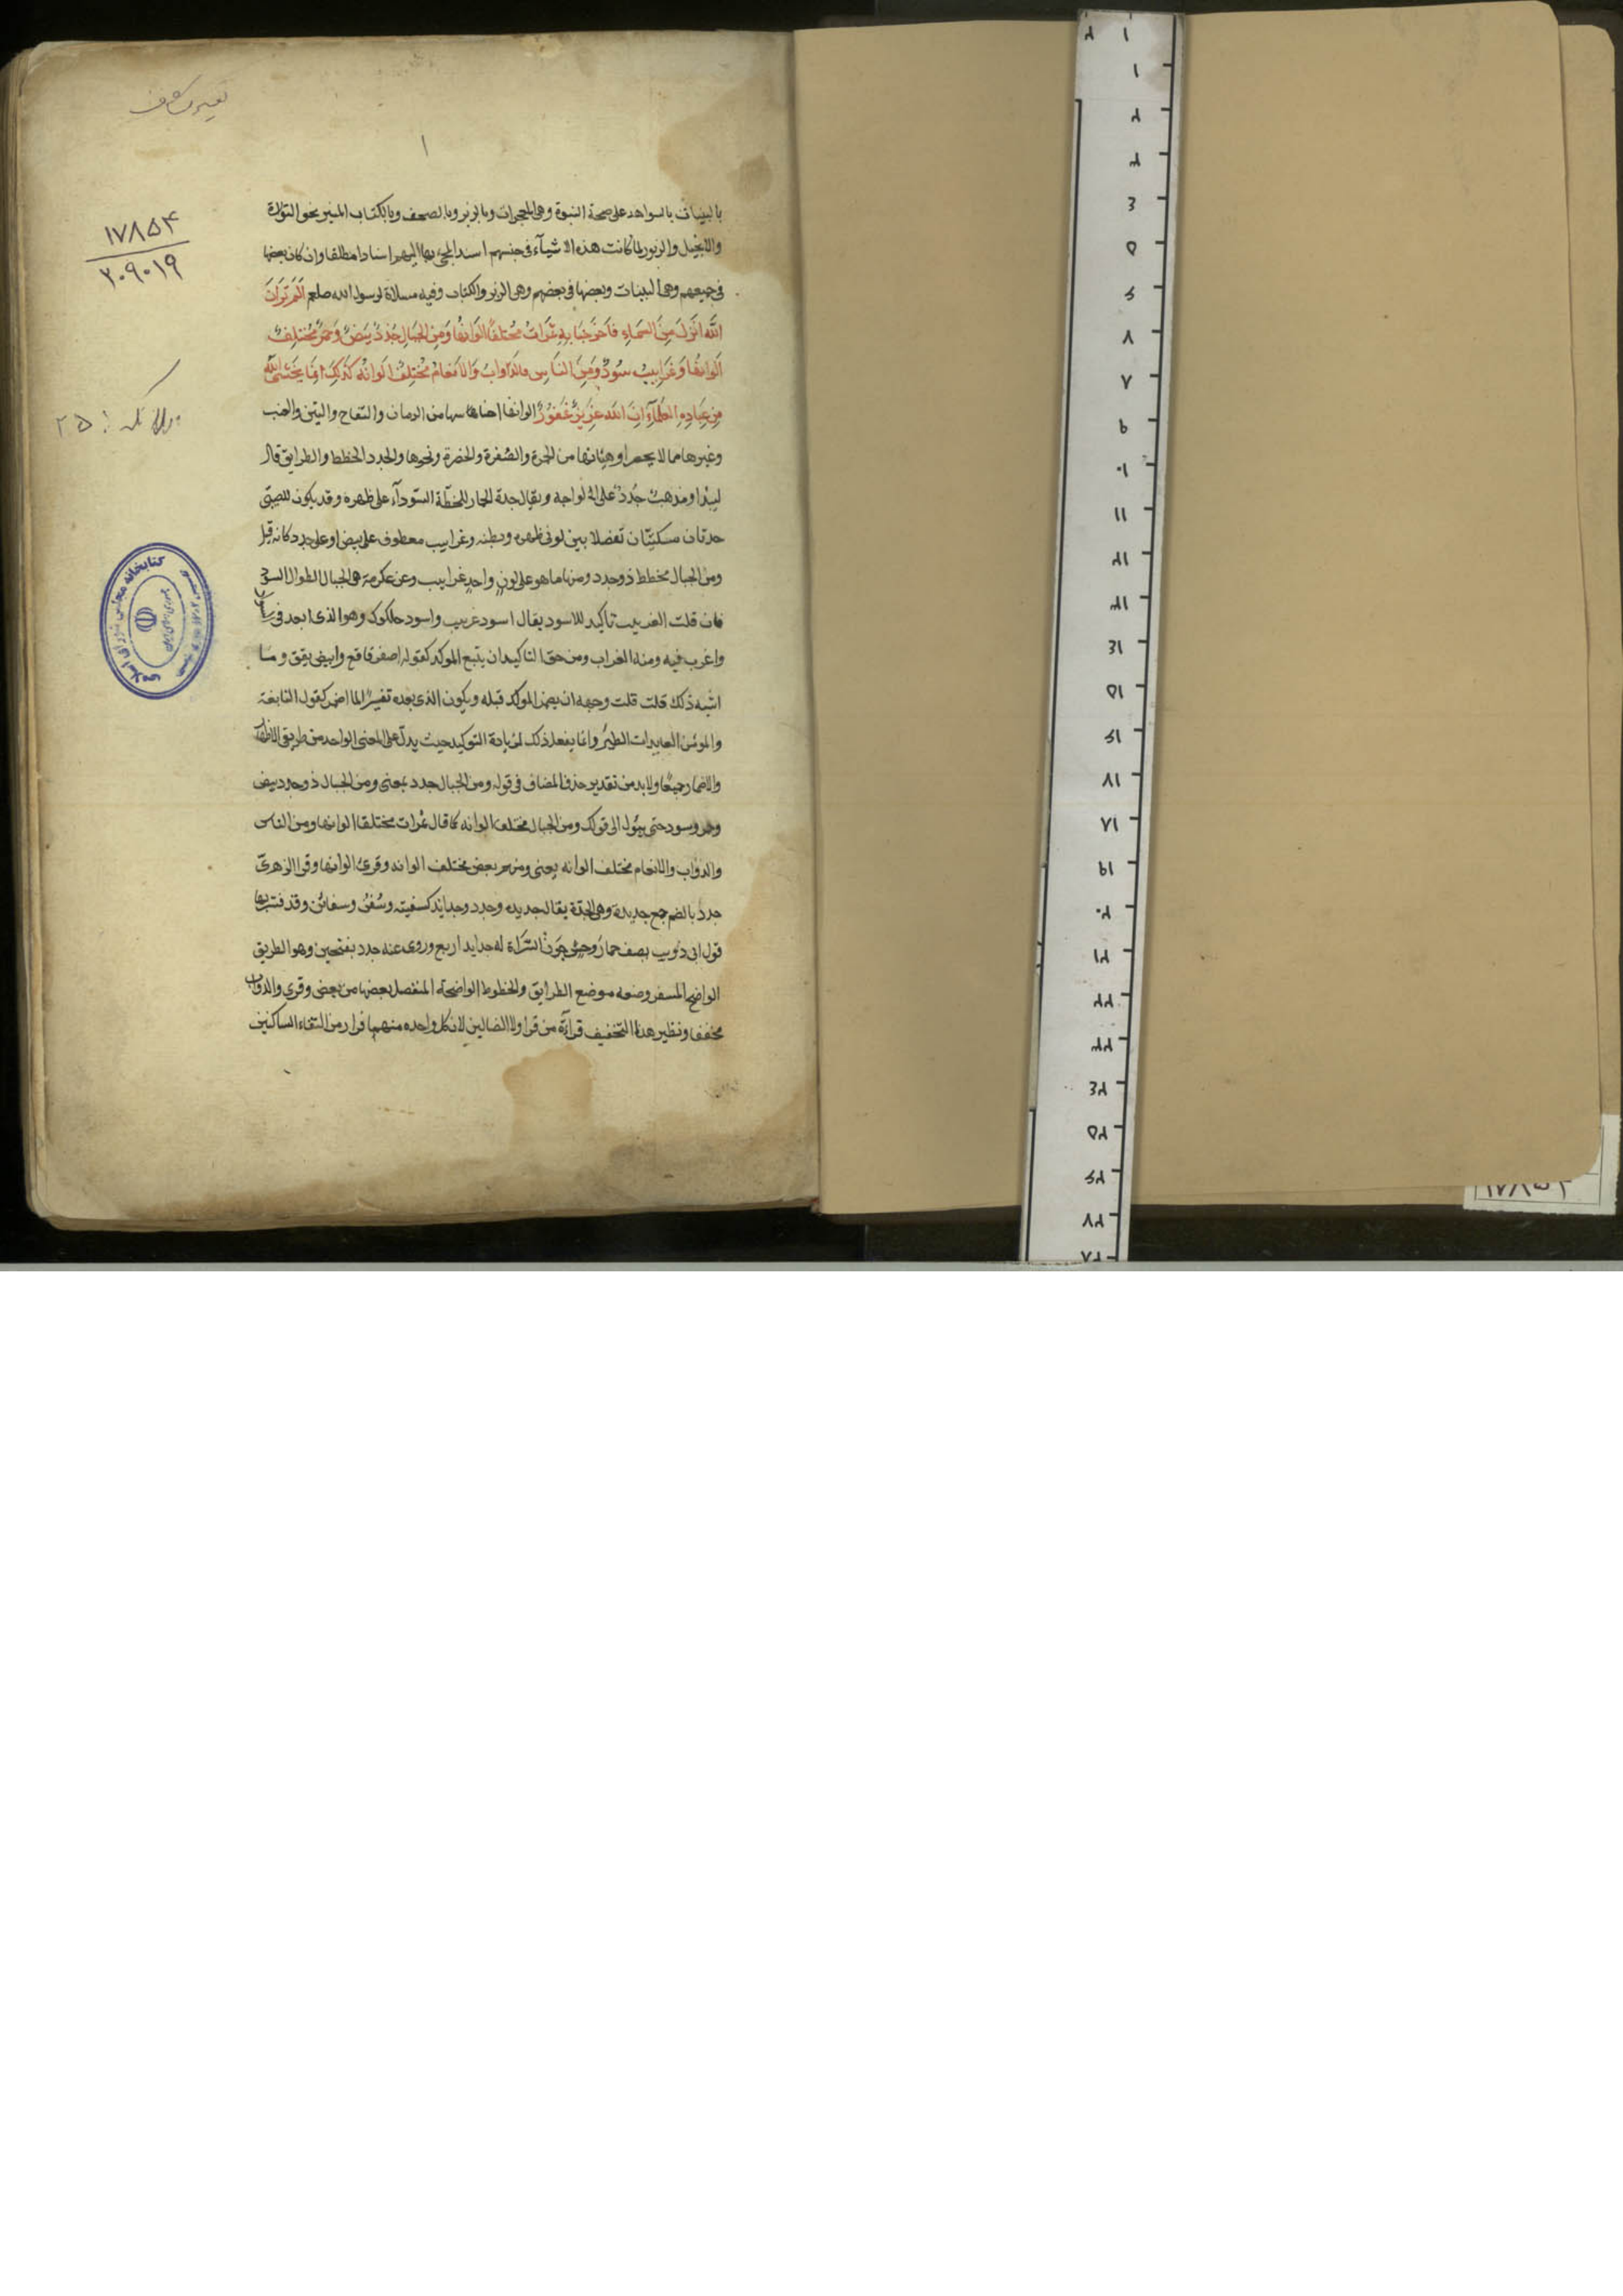 تفسیر کشاف
١
١٧٨٥٤
٢٠٩٠١٩
٢٥
بالبینات بالشواهد على صحة النبوة وهى المعجزات وبالزبر وبالصحف وبالكتاب المنیر نحو التوراة
والانجیل والزبور لما كانت هذه الاشیآء فى جنسهم اسند المجئ بها الیهم اسنادا مطلقا وان كان بعضها
فى جمیعهم وهى البینات وبعضها فى بعضهم وهى الزبر والكتاب وفیه مسلاة لرسول الله صلعم اَلَم تَرَ اَنَّ
اللَّهَ اَنْزَلَ مِنَ السَّمَاءِ فَاَخْرَجْنَا بِهِ ثَمَرَاتٍ مُخْتَلِفًا اَلْوَانُهَا وَمِنَ الْجِبَالِ جُدَدٌ بِیضٌ وَحُمْرٌ مُخْتَلِفٌ
اَلْوَانُهَا وَغَرَابِیبُ سُودٌ وَمِنَ النَّاسِ وَالدَّوَابِّ وَالاَنْعَامِ مُخْتَلِفٌ اَلْوَانُهُ كَذَلِكَ اِنَّمَا یَخْشَى اللَّهَ
مِنْ عِبَادِهِ الْعُلَمَآءُ اِنَّ اللَّهَ عَزِیزٌ غَفُورٌ الوانها اجناسها من الرمان والتفاح والتین والعنب
وغیرها مما لا یحصر او هیئاتها من الحمرة والصفرة والخضرة ونحوها والجدد الخطط والطرایق قال
لبید او مذهب جدد على الواحه ویقال جدة الحمار للخطة السودآء على ظهره وقد یكون للظبى
جدتان مسكیتان تفصلا بین لونى ظهره وبطنه وغرابیب معطوف على بیض او على جدد كانه قیل
ومن الجبال مخطط ذو جدد ومنها ما هو على لون واحد غرابیب وعن عكرمة هى الجبال الطوال السود
فان قلت الغربیب تاكید للاسود یقال اسود غربیب واسود حلكوك وهو الذى ابعد فى السواد
واغرب فیه ومنه الغراب ومن حق التاكید ان یتبع الموكد كقوله اصفر فاقع وابیض یقق وما
اشبه ذلك قلت قلت وجهه ان یضمر الموكد قبله ویكون الذى بعده تفسیرًا لما اضمر كقول النابغة
والمومن العایذات الطیر وانما یفعل ذلك لزیادة التوكید حیث یدل على المعنى الواحد من طریق الاظهار
والاضمار جمیعا ولا بد من تقدیر حذف المضاف فى قوله ومن الجبال جدد بمعنى ومن الجبال ذو جدد بیض
وحمر وسود حتى یئول الى قولك ومن الجبال مختلف الوانه كما قال ثمرات مختلفا الوانها ومن الناس
والدواب والانعام مختلف الوانه یعنى ومنهم بعض مختلف الوانه وقرئ الوانها وقرا الزهرى
جدد بالضم جمع جدیدة وهى الجدة یقال جدیده وجدد وجداید كسفینه وسفن وسفائن وقد فسر بها
قول ابى ذویب یصف حمار وحش جون السراة له جداید اربع وروى عنه جدد بفتحین وهو الطریق
الواضح المسفر وضعه موضع الطرایق والخطوط الواضحة المنفصل بعضها من بعض وقرئ والدواب
مخففا ونظیر هذا التخفیف قرآءة من قرا ولا الضالین لان كل واحده منهما فرار من التقاء الساكنین
كتابخانه مجلس شورای اسلامی
١٧٨٥٤